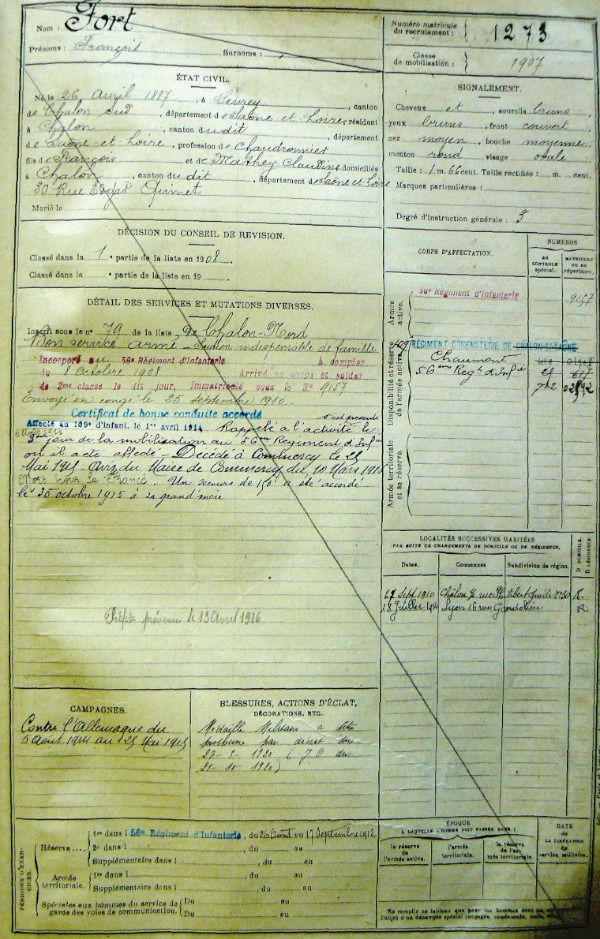 Nom : Fort
Prénoms : François Surnoms :
Numéro matricule du recrutement : 1273
Classe de mobilisation : 1907
ÉTAT CIVIL.
Né le 26 Avril 1887, à Sevrey, canton
de Chalon Sud, département de Saône et Loire, résidant
à Chalon, canton dudit, département
de Saône et Loire, profession de Chaudronnier
fils de François et de Mathey Claudine domiciliés
à Chalon, canton du dit, département de Saône et Loire
30 Rue Edgar Quinet
Marié le
SIGNALEMENT.
Cheveux et sourcils bruns
yeux bruns, front couvert
nez moyen, bouche moyenne
menton rond, visage ovale
Taille : 1 m. 66 cent. Taille rectifiée : m. cent.
Marques particulières :
Degré d'instruction générale : 3
DÉCISION DU CONSEIL DE REVISION.
Classé dans la 1e partie de la liste en 1908
Classé dans la partie de la liste en 19
CORPS D'AFFECTATION.
NUMÉROS
AU CONTRÔLE spécial.
MATRICULE OU AU répertoire.
Armée active.
56e Régiment d'Infanterie 9157
Disponibilité et réserve de l'armée active.
109 RÉGIMENT D'INFANTERIE DE
Chaumont
56eme Regt d'Infie
Armée territoriale et sa réserve.
DÉTAIL DES SERVICES ET MUTATIONS DIVERSES.
Inscrit sous le n° 79 de la liste de Chalon-Nord
Bon service armé - Soutien indispensable de famille
Incorporé au 56e Régiment d'Infanterie à compter
du 8 Octobre 1908 Arrivé au corps et soldat
de 2me classe le dit jour, immatriculé sous le N° 9157
Envoyé en congé le 25 septembre 1910
Certificat de bonne conduite accordé
Affecté au 109e d'Infant. le 1er avril 1914. Rappelé à l'activité le
3e jour de la mobilisation au 56eme Regiment d'Infie
où il a été affecté - Décédé à Commercy le 25
Mai 1915 Avis du Maire de Commercy du
Mort pour la France. Un secours de 150f a été accordé
le 30 octobre 1915 à sa grand'mère
prévenu le 13 Avril 1916
LOCALITÉS SUCCESSIVES HABITÉES
PAR SUITE DE CHANGEMENTS DE DOMICILE OU DE RÉSIDENCE.
Dates. Communes. Subdivision de région. D domicile. R résidence.
Sept 1910 Chalon R
Juillet 1914 Lyon 16 rue R
CAMPAGNES.
Contre l'Allemagne du
5 Août 1914 au 25 Mai 1915
BLESSURES, ACTIONS D'ÉCLAT,
DÉCORATIONS, ETC.
Médaille Militaire a été
par décret du
(J.O. du
1920)
PÉRIODES D'EXERCICES.
Réserve
1re dans l 56e Régiment d'Infanterie, du 26 Août au 17 Septembre 1912
2e dans l , du au
Supplémentaire dans l , du au
Armée territoriale.
1re dans l , du au
Supplémentaire dans l , du au
Spéciales aux hommes du service de garde des voies de communication.
Du au
Du au
ÉPOQUE
À LAQUELLE L'HOMME DOIT PASSER DANS :
la réserve de l'armée active.
l'armée territoriale.
la réserve de l'armée territoriale.
DATE DE LA LIBÉRATION du service militaire.